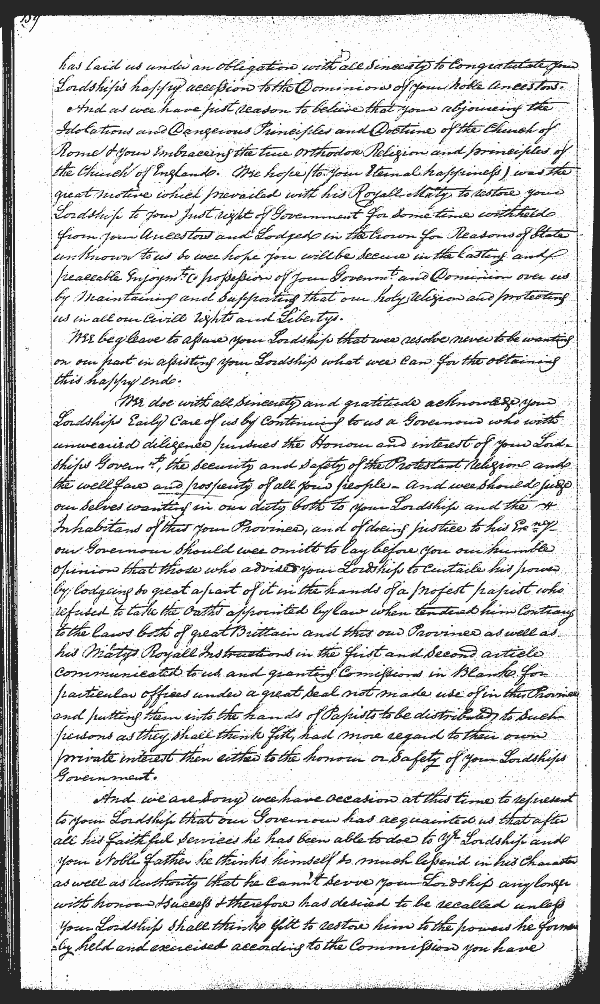 159
has laid us under an obligation with all Sincerity to Congratulate your
Lordships happy accession to the Dominions of your Noble Ancestors.
And as wee have just reason to believe that your abjureing the
Idolatious and Dangerous Principles and Doctrine of the Church of
Rome & your Embraceing the true orthodox Religion and principles of
the Church of England. Wee hope (to your Eternal happiness) was the
great motive which prevailed with his Royall Maty. to restore your
Lordship to your just right of Government for some time withheld
from your Ancestors and Lodged in the Crown for Reasons of State
unknown to us so wee hope you will be Secure in the lasting and
peaceable Enjoymt. & possession of your Governmt. and Dominion over us
by Maintaining and Supporting that our holy religion and protecting
us in all our Civill rights and Libertys.
Wee beg leave to assure your Lordship that wee resolve never to be wanting
on our part in assisting your Lordship what wee can for the obtaining
this happy end.
Wee doe with all Sincerety and gratitude acknowledge your
Lordships Early Care of us by Continuing to us a Governour who with
unwearied diligence pursues the Honour and interest of your Lord-
ships Governmt., the Security and Safety of the Protestant religion and
the wellfare and prosperity of all your people - And wee Should judge
our selves wanting in our duty both to your Lordship and the
Inhabitans of this your Province, and of doeing justice to his Exncy
our Governour should wee omitt to lay before you our humble
opinion that those who advised your Lordship to Curtaile his power
by lodgeing so great a part of it in the hands of a profest papist who
refused to take the Oaths appointed by law when tendered him Contrary
to the laws both of great Brittain and this our Province as well as
his Matys Royall Instructions in the first and Second article
Communicated to us and granting Comissions in Blank for
particular offices under a great Seal not made use of in this Province
and putting them into the hands of Papists to be distributed to Such
persons as they shall think fitt, had more regard to their own
private interest then either to the honour or Safety of your Lordships
Government.
And we are Sorry wee have occasion at this time to represent
to your Lordship that our Governour has acquainted us that after
all his faithful Services he has been able to doe to yr. Lordship and
your Noble father he thinks himself so much lessen'd in his Character
as well as Authority that he cann't Serve your Lordship any longer
with honour & Success & therefore has desired to be recalled unless
your Lordship shall thinke fitt to restore him to the powers he former
=ly held and exercised according to the Commission you have